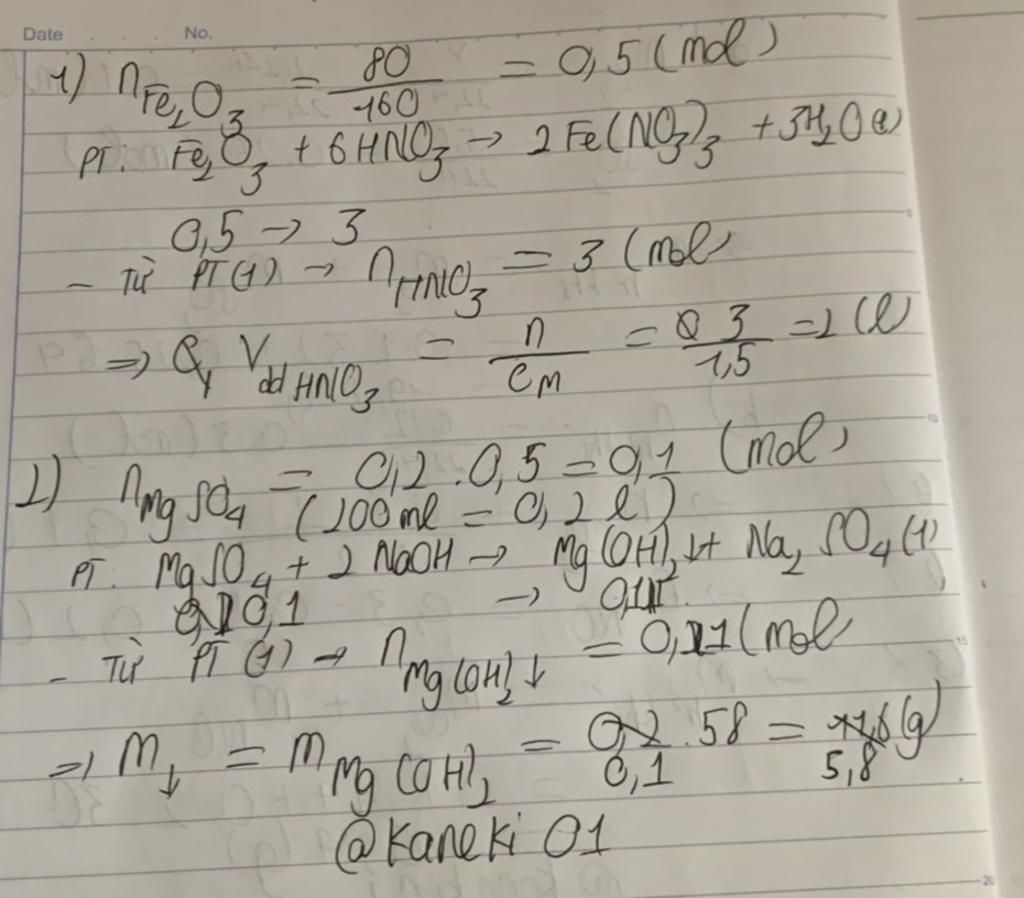 Date No.
1) nFe2O3 = 80/160 = 0,5 (mol)
PT: Fe2O3 + 6HNO3 → 2Fe(NO3)3 + 3H2O
0,5 → 3
- Từ PT(1) → nHNO3 = 3 (mol)
=> VddHNO3 = n/CM = 3/1,5 = 2 (l)
2) nMgSO4 = 0,2 . 0,5 = 0,1 (mol)
(200ml = 0,2 l)
PT: MgSO4 + 2NaOH → Mg(OH)2↓ + Na2SO4 (1)
0,1 → 0,1
- Từ PT(1) → nMg(OH)2↓ = 0,1 (mol)
=> m↓ = mMg(OH)2 = 0,1 . 58 = 5,8 (g)
@Kaneki 01